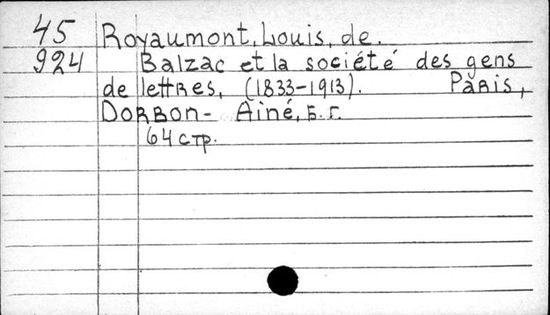 45 Royaumont, Louis, de.
924 Balzac et la société des gens
de lettres, (1833-1913). Paris,
Dorbon-Ainé, Б. Г.
64 стр.